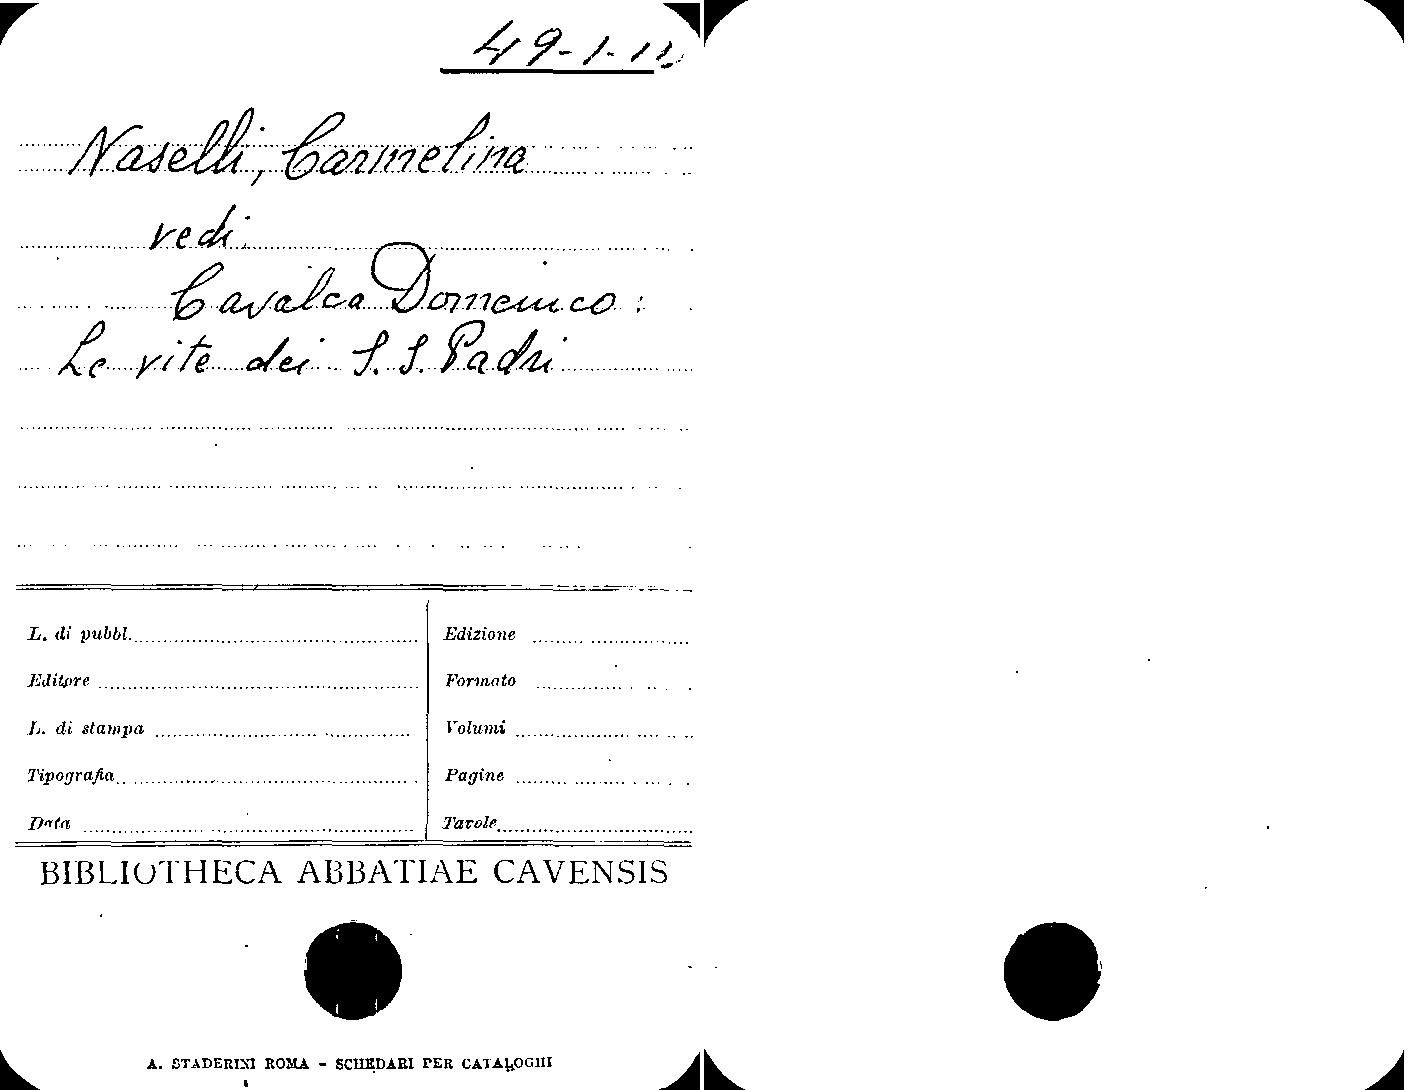 49-1-11
Naselli, Carmelina
vedi
Cavalca Domenico:
Le vite dei S.S. Padri
L. di pubbl.
Edizione
Editore
Formato
L. di stampa
Volumi
Tipografia
Pagine
Data
Tavole
BIBLIOTHECA ABBATIAE CAVENSIS
A. STADERINI ROMA - SCHEDARI PER CATALOGHI